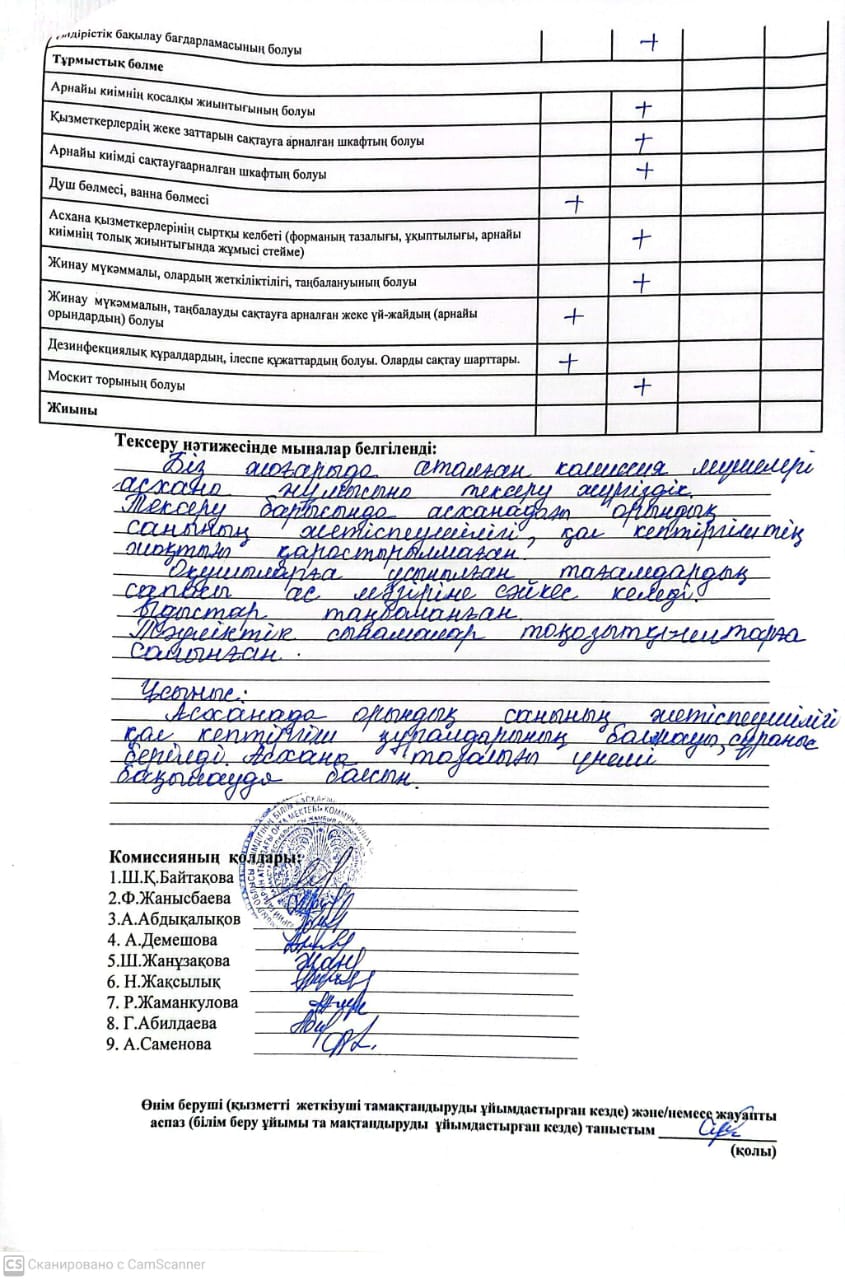 дірістік бақылау бағдарламасының болуы +
Тұрмыстық бөлме
Арнайы киімнің қосалқы жиынтығының болуы +
Қызметкерлердің жеке заттарын сақтауға арналған шкафтың болуы +
Арнайы киімді сақтауғаарналған шкафтың болуы +
Душ бөлмесі, ванна бөлмесі +
Асхана қызметкерлерінің сыртқы келбеті (форманың тазалығы, ұқыптылығы, арнайы
киімнің толық жиынтығында жұмысі стейме) +
Жинау мүкәммалы, олардың жеткіліктілігі, таңбалануының болуы +
Жинау мүкәммалын, таңбалауды сақтауға арналған жеке үй-жайдың (арнайы
орындардың) болуы +
Дезинфекциялық құралдардың, ілеспе құжаттардың болуы. Оларды сақтау шарттары. +
Москит торының болуы +
Жиыны
Тексеру нәтижесінде мыналар белгіленді:
Біз жоғарыда аталған комиссия мүшелері
асхана жұмысына тексеру жүргіздік.
Тексеру барысында асханадағы орындық
санының жетіспеушілігі, қол кептіргіштің
жоқтығы қарастырылмаған.
Оқушыларға ұсынылған тағамдардың
сапасы ас мәзіріне сәйкес келеді.
Ыдыстар таңбаланған.
Тәуліктік сынамалар тоңазытқыштарға
салынған.
Ұсыныс:
Асханада орындық санының жетіспеушілігі
қол кептіргіш құралдарының болмауы, сұраныс
берілді. Асхана тазалығы үнемі
бақылауда болсын.
Комиссияның қолдары:
1.Ш.Қ.Байтақова
2.Ф.Жанысбаева
3.А.Абдықалықов
4. А.Демешова
5.Ш.Жанұзақова
6. Н.Жақсылық
7. Р.Жаманкулова
8. Г.Абилдаева
9. А.Саменова
Өнім беруші (қызметті жеткізуші тамақтандыруды ұйымдастырған кезде) және/немесе жауапты
аспаз (білім беру ұйымы та мақтандыруды ұйымдастырған кезде) таныстым
(қолы)
CS Сканировано с CamScanner